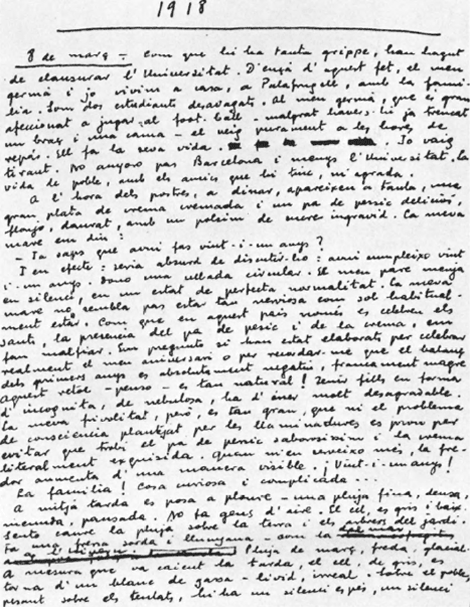 1918
8 de març - Com que hi ha tanta grippe, han hagut
de clausurar l'Universitat. D'ençà d'aquest fet, el meu
germà i jo vivim a casa, a Palafrugell, amb la famí-
lia. Som dos estudiants desvagats. Al meu germà, que és gran
afeccionat a jugar al foot-ball - malgrat haver-s-hi ja trencat
un braç i una cama - el veig purament a les hores de
repàs. Ell fa la seva vida. Jo vaig
tirant. No anyoro pas Barcelona i menys l'Universitat. La
vida de poble, amb els amics que hi tinc, m'agrada.
A l'hora dels postres, a dinar, apareixen a taula, una
gran plata de crema cremada i un pa de pessic deliciós,
flonjo, daurat, amb un polsim de sucre ingràvid. La meva
mare em diu:
- Ja saps que avui fas vint-i-un anys?
I en efecte: seria absurd de discutir-ho: avui compleixo vint
-i-un anys. Dono una ullada circular. El meu pare menja
en silenci, en un estat de perfecta normalitat. La meva
mare no sembla pas estar tan nerviosa com sol habitual-
ment estar. Com que en aquest país només es celebren els
sants, la presència del pa de pessic i de la crema, em
fan malfiar. Em pregunto si han estat elaborats per celebrar
realment el meu aniversari o per recordar-me que el balanç
dels primers anys és absolutament negatiu, francament magre
Aquest retol - penso - es tan natural! Tenir fills en forma
d'incognita, de nebulosa, ha d'ésser molt desagradable.
La meva frivolitat, però, es tan gran, que ni el problema
de consciencia plantejat per les llaminadures es prou per
evitar que trobi el pa de pessic saborosíssim i la crema
literalment exquisida. Quan m'en serveixo més, la fre-
dor aumenta d'una manera visible. ¡Vint-i-un anys!
La família! Cosa curiosa i complicada...
A mitja tarda es posa a ploure - una pluja fina, densa,
menuda, pausada. No fa gens d'aire. El cel, es gris i baix.
Sento caure la pluja sobre la terra i els arbres del jardí.
Fa una fressa sorda i llunyana - com la
Pluja de març, freda, glacial.
A mesura que va caient la tarda, el cel, de gris, es
torna d'un blanc de gassa - lívid, irreal. Sobre el poble,
pesant sobre els teulats, hi ha un silenci espès, un silenci